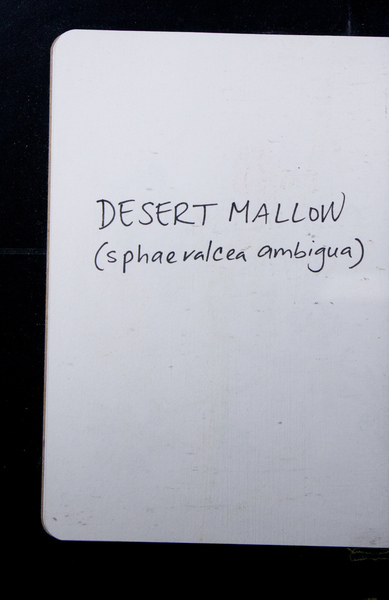 DESERT MALLOW
(sphaevalcea ambigua)